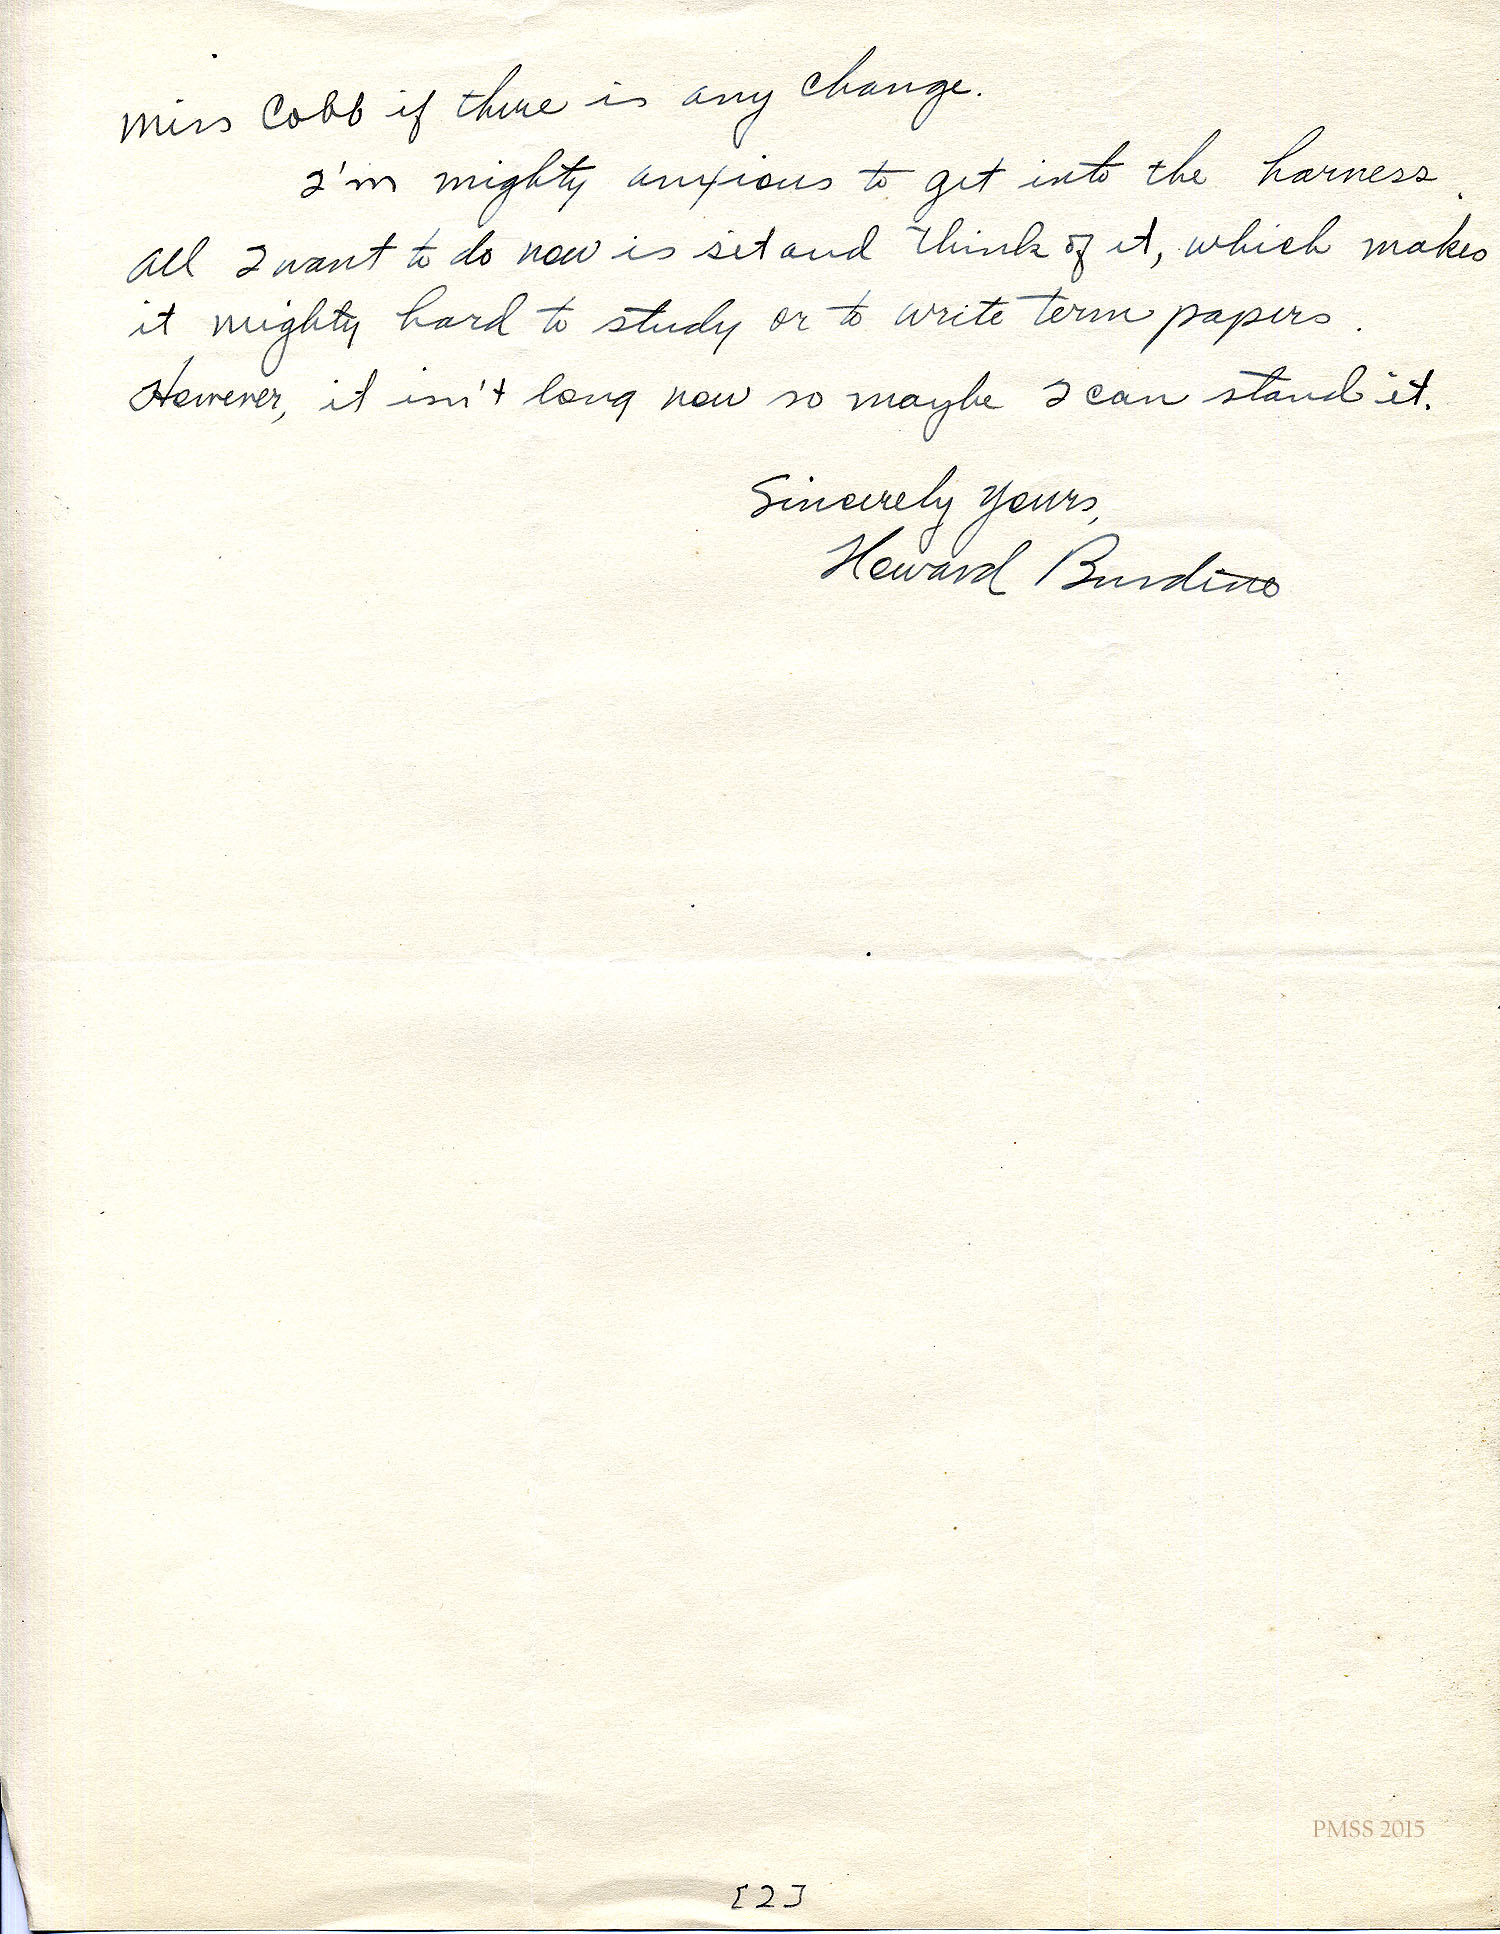 Miss Cobb if there is any change.
I'm mighty anxious to get into the harness.
All I want to do now is set and think of it, which makes
it mighty hard to study or to write term papers.
However, it isn't long now so maybe I can stand it.
Sincerely Yours,
Howard Burdine
PMSS 2015
[2]